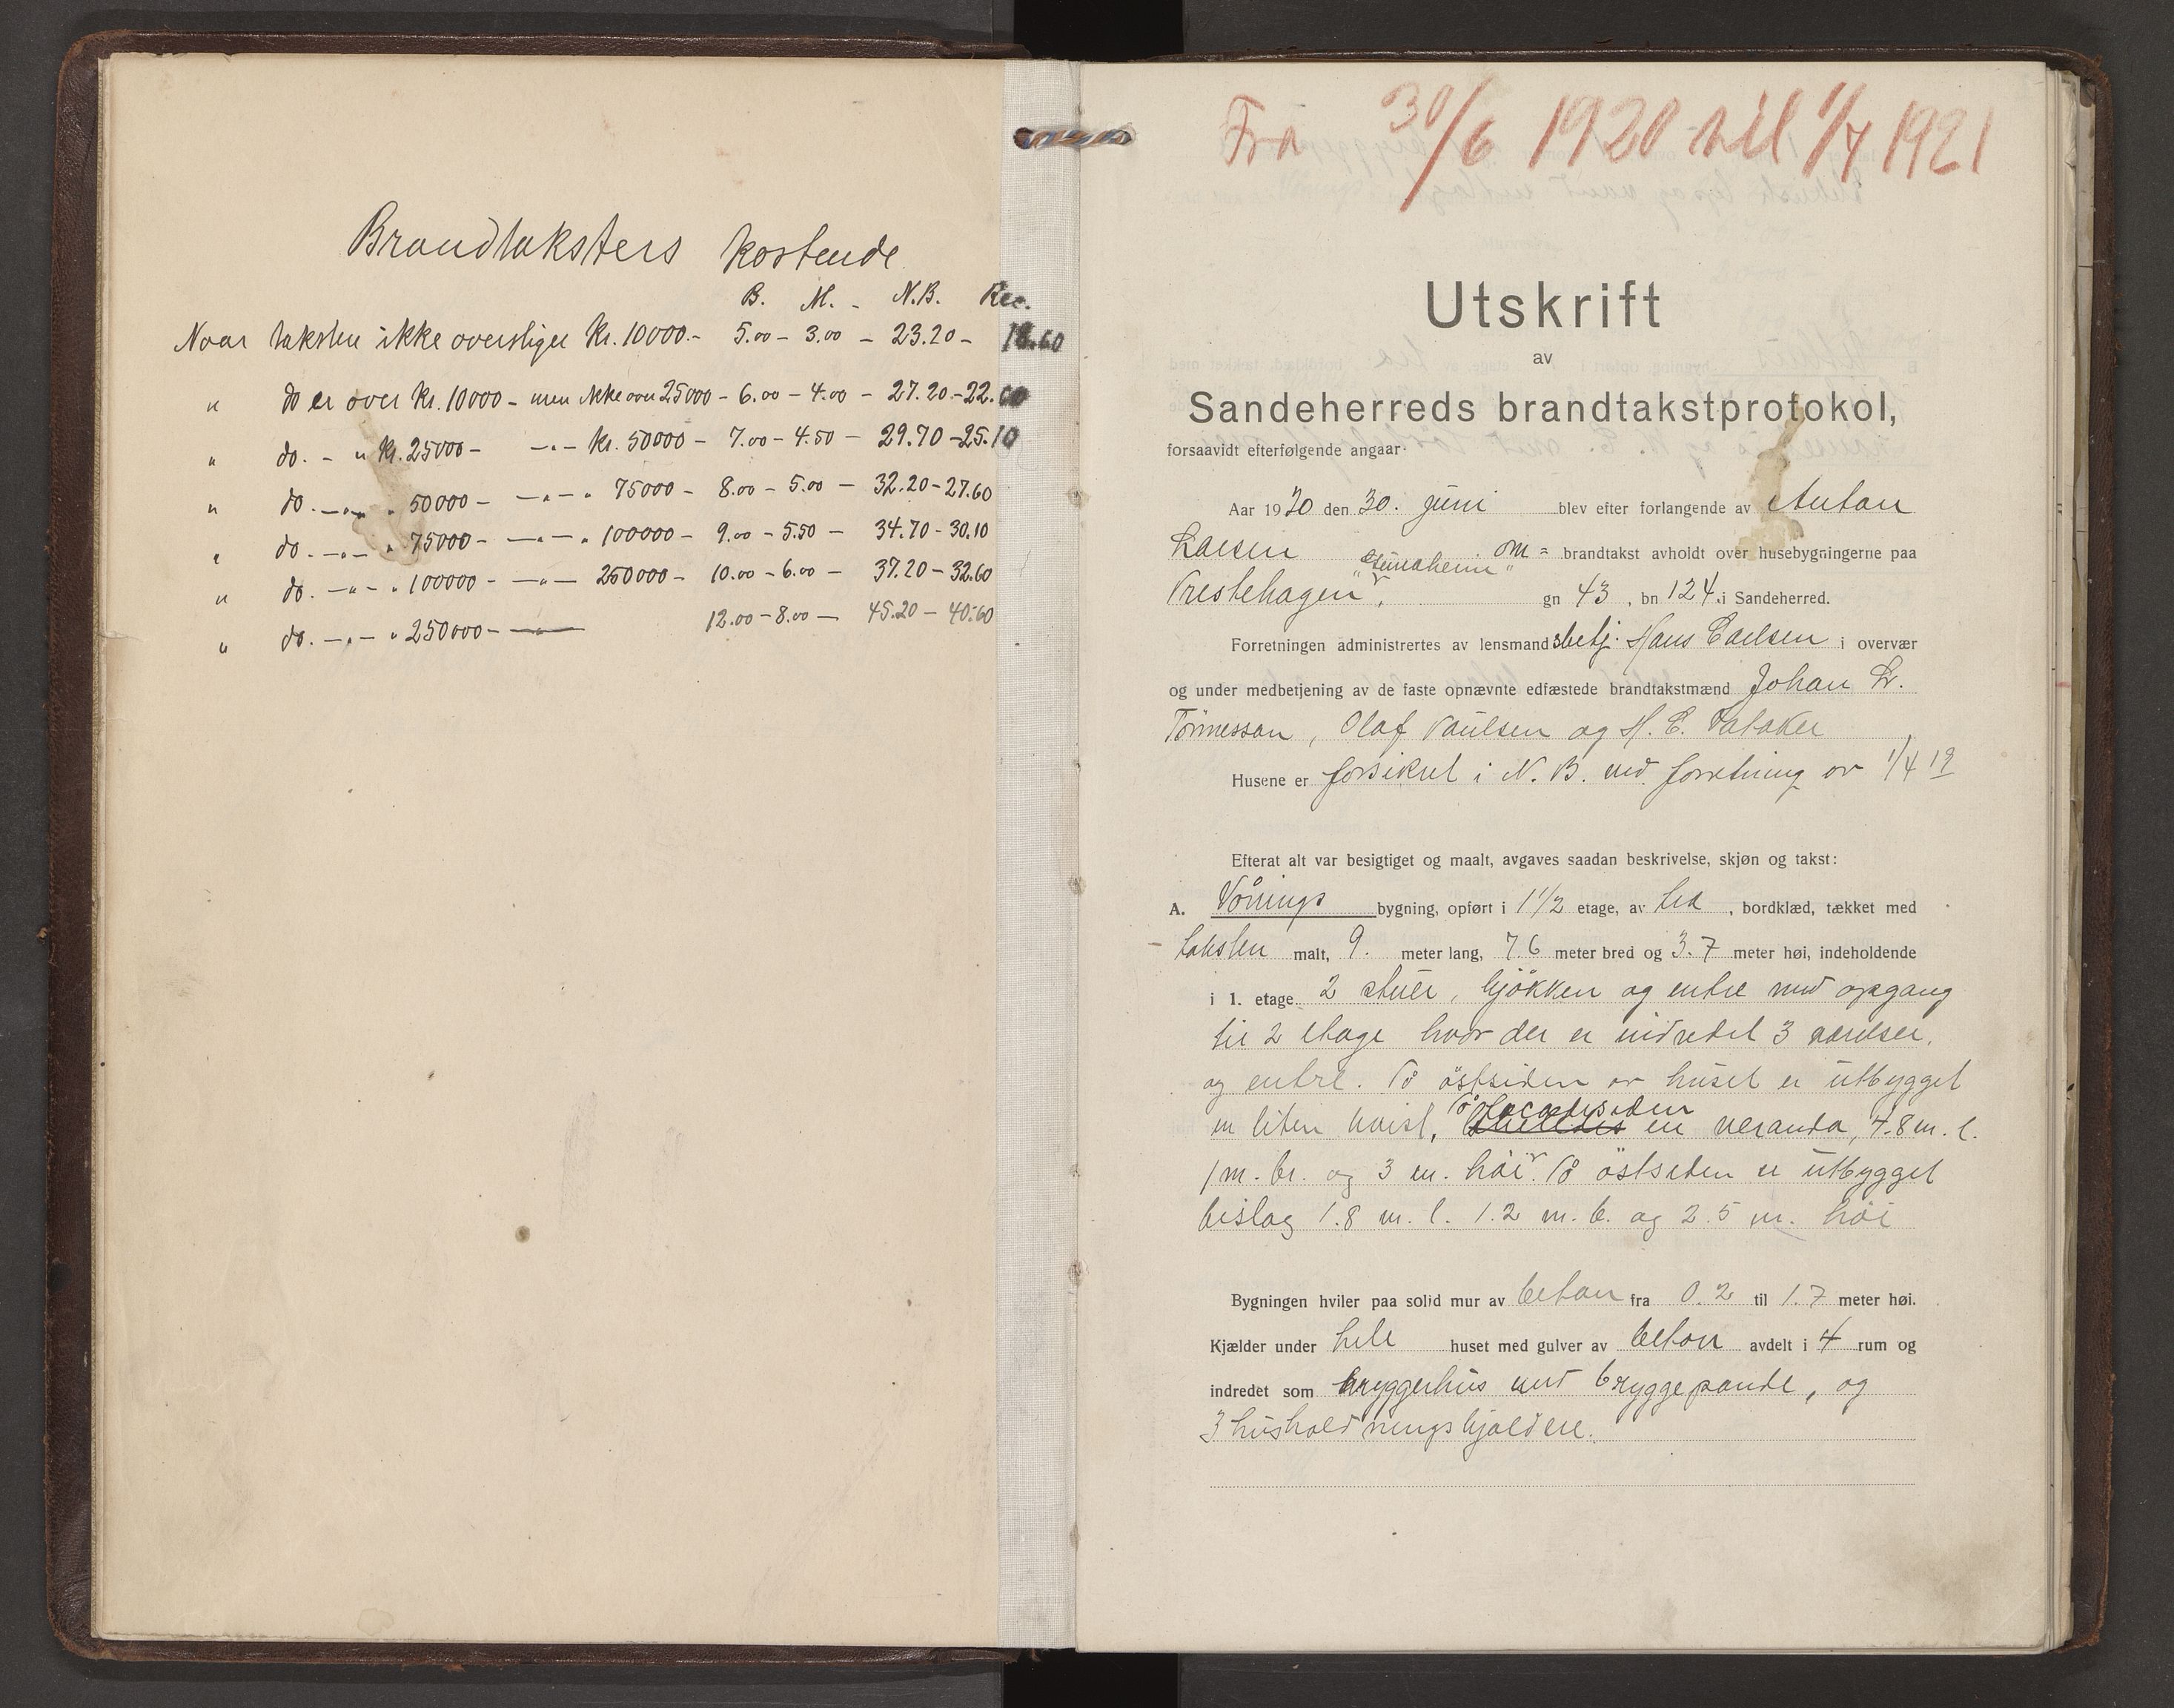 Brandtaksters kostende
B. M. - N.B. Rec.
Naar taksten ikke overstiger Kr. 10000.- 5.00 - 3.00 - 23.20 - 18.60
" do er over Kr. 10000 - men ikke over 25000 - 6.00 - 4.00 - 27.20 - 22.60
" do. - " Kr. 25000 - -"- Kr. 50000 - 7.00 - 4.50 - 29.70 - 25.10
" do. -"- " 50000 - -"- " 75000 - 8.00 - 5.00 - 32.20 - 27.60
" do. -"- " 75000 - -"- " 100000 - 9.00 - 5.50 - 34.70 - 30.10
" do. -"- " 100000 - -"- 250000 - 10.00 - 6.00 - 37.20 - 32.60
" do. -"- " 250000 - -"- 12.00 - 8.00 - 45.20 - 40.60
Fra 30/6 1920 til 1/4 1921
Utskrift
av
Sandeherreds brandtakstprotokol,
forsaavidt efterfølgende angaar.
Aar 1920 den 30. juni blev efter forlangende av Anton
Larsen om= brandtakst avholdt over husebygningerne paa
Prestehagen, gn 43, bn 124 i Sandeherred.
Forretningen administrertes av lensmandsbetj. Hans Carlsen i overvær
og under medbetjening av de faste opnævnte edfæstede brandtakstmænd Johan Lr.
Tönnesson, Olaf Paulsen og H. E. Virik
Husene er forsikret i N. B. ved forretning av 1/4 19
Efterat alt var besigtiget og maalt, avgaves saadan beskrivelse, skjøn og takst:
A. Vånings bygning, opført i 1 1/2 etage, av træ, bordklæd, tækket med
taksten malt, 9. meter lang, 7.6 meter bred og 3.7 meter høi, indeholdende
i 1. etage 2 stuer, kjökken og entre med opgang
til 2 etage hvor der er indredet 3 værelser,
og entre. På östsiden av huset er utbygget
en liten kvist, På facadesiden en veranda, 4.8 m. l.
1 m. br. og 3 m. höi. På östsiden er utbygget
bislag 1.8 m. l. 1.2 m. b. og 2.5 m. höi
Bygningen hviler paa solid mur av beton fra 0.2 til 1.7 meter høi.
Kjælder under hele huset med gulver av beton avdelt i 4 rum og
indredet som bryggerhus med bryggepande, og
3 husholdningskjeldere.